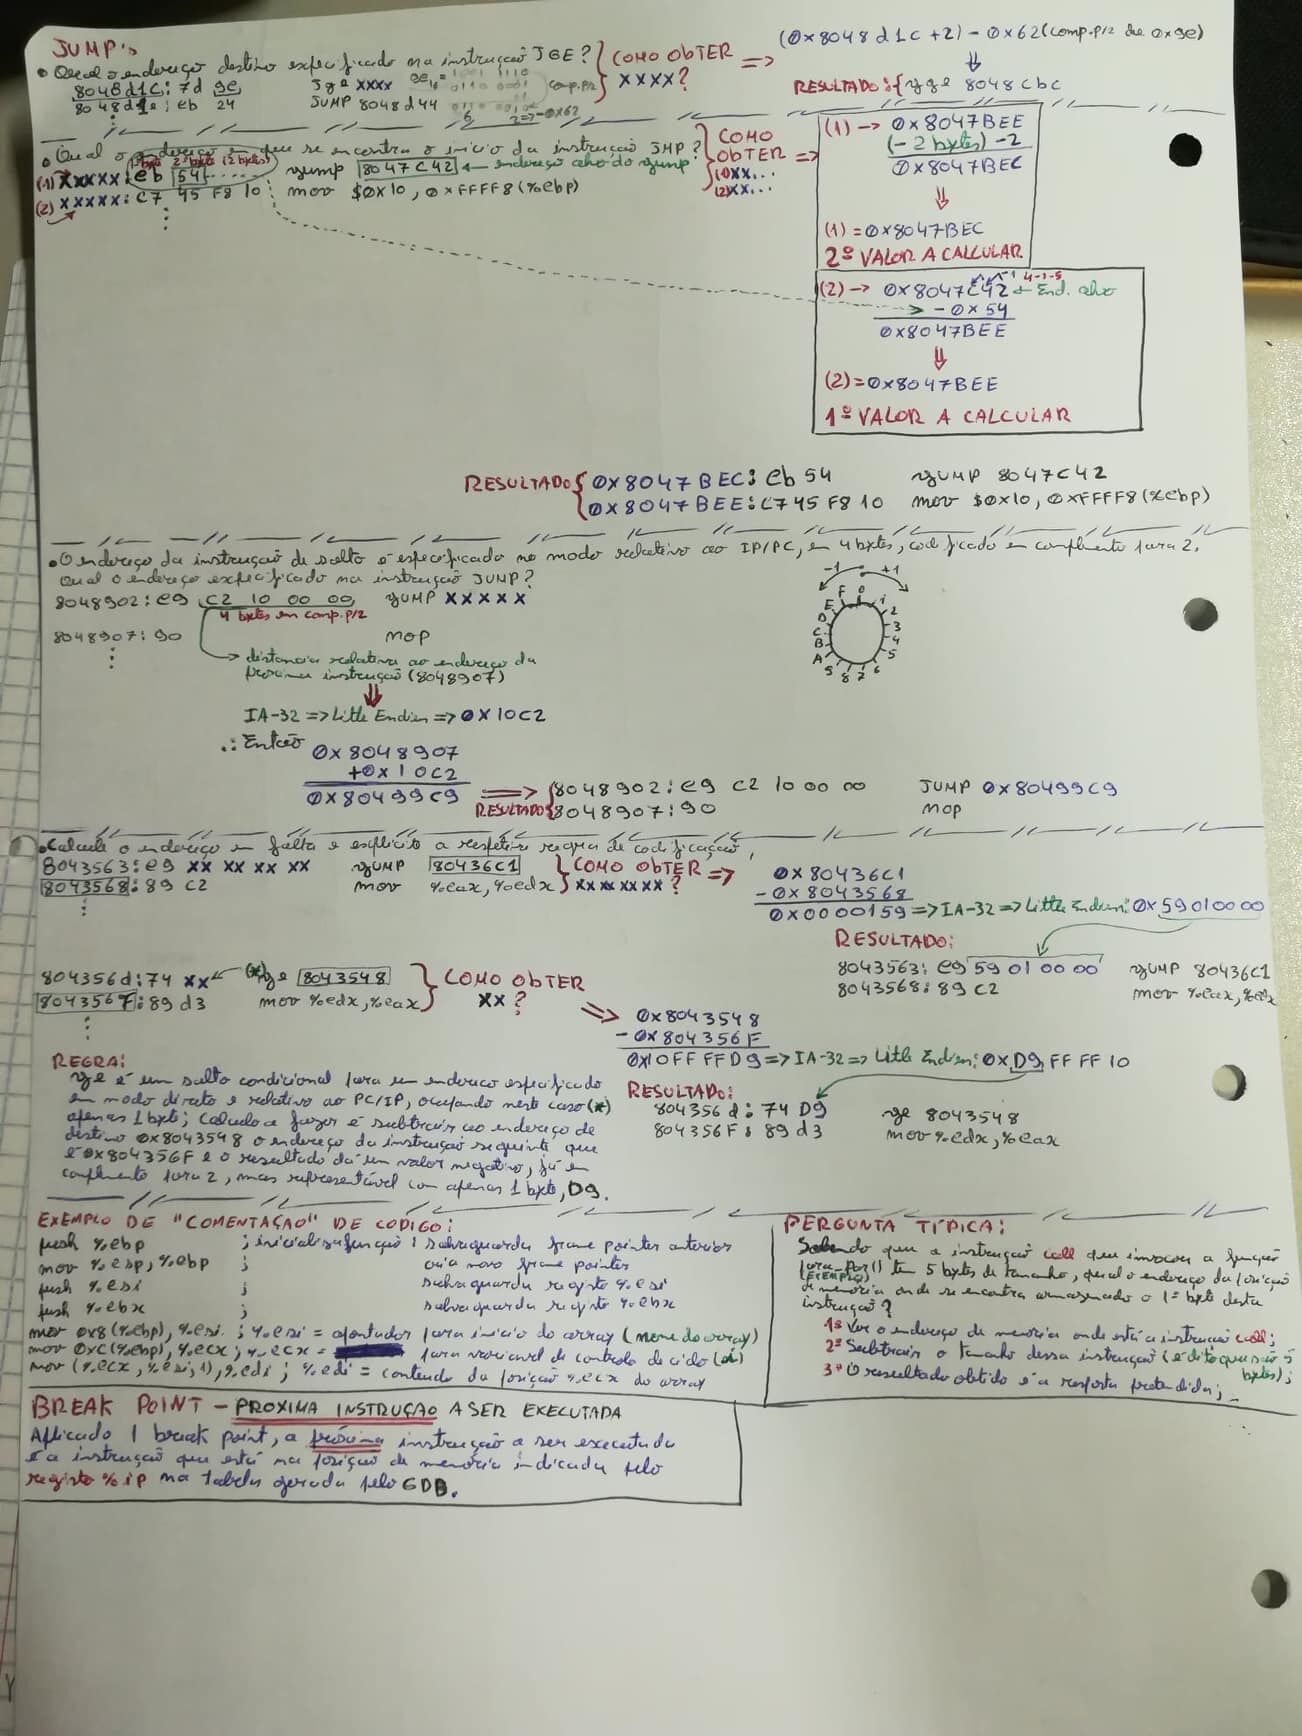 JUMP's
• Qual o endereço destino especificado na instrução JGE? } COMO ObTER XXXX? =>
8048d1C: 7d 9e Jge XXXX
8048d1e: eb 24 JUMP 8048d44
(0x8048d1c+2) - 0x62 (comp.p/2 de 0x9e)
RESULTADO: { jge 8048cbc
• Qual o endereço em que se encontra o início da instrução JMP? } COMO ObTER =>
(1) XXXXX: eb 54 jump 8047C42 <- endereço alvo do jump
(2) XXXXX: C7 45 F8 10 mov $0x10, 0xFFFF8(%ebp)
(1)XX...
(2)XX...
(1) -> 0x8047BEE
(-2 bytes) -2
0x8047BEC
(1) = 0x8047BEC
2º VALOR A CALCULAR
(2) -> 0x8047C42 <- End. alvo
- 0x54
0x8047BEE
(2) = 0x8047BEE
1º VALOR A CALCULAR
RESULTADO { 0x8047BEC: eb 54 jUMP 8047C42
0x8047BEE: C7 45 F8 10 mov $0x10, 0xFFFF8(%ebp)
• O endereço da instrução de salto é especificado no modo relativo ao IP/PC, em 4 bytes, codificado em complemento para 2.
Qual o endereço especificado na instrução JUMP?
8048902: e9 C2 10 00 00, jUMP XXXXX
4 bytes em comp.p/2
8048907: 90 nop
-1 +1
F 0 1 2 3 4 5 6 7 8 9 A B C D E
distancia relativa ao endereço da
proxima instrução (8048907)
IA-32 => Little Endien => 0X10C2
∴ Então 0x8048907
+0x10C2
0x80499C9 => RESULTADO { 8048902: e9 C2 10 00 00 JUMP 0x80499C9
8048907: 90 nop
• Calcule o endereço em falta e explicite a respetiva regra de codificação,
8043563: e9 XX XX XX XX jUMP 80436C1 } COMO ObTER =>
8043568: 89 C2 mov %eax, %edx } XXXXXXXX ?
0x80436C1
- 0x8043568
0x0000159 => IA-32 => Little Endien: 0x59010000
RESULTADO:
8043563: e9 59 01 00 00 jUMP 80436C1
8043568: 89 C2 mov %eax, %edx
804356d: 74 XX (*) je 8043548 } COMO ObTER
804356F: 89 d3 mov %edx, %eax } XX ?
0x8043548
- 0x804356F
0x10FF FFD9 => IA-32 => Little Endien: 0x D9 FF FF 10
RESULTADO:
804356d: 74 D9 je 8043548
804356F: 89 d3 mov %edx, %eax
REGRA:
je é um salto condicional para um endereco especificado
em modo direto e relativo ao PC/IP, ocupando neste caso (*)
apenas 1 byte; Calculo a fazer é subtrair ao endereço de
destino 0x8043548 o endereço da instrução seguinte que
é 0x804356F e o resultado dá um valor negativo, já em
complemento para 2, mas representável com apenas 1 byte, D9.
EXEMPLO DE "COMENTAÇÃO" DE CODIGO:
push %ebp ; inicializa função; salvaguarda frame pointer anterior
mov %esp, %ebp ; cria novo frame pointer
push %esi ; salvaguarda registo %esi
push %ebx ; salvaguarda registo %ebx
mov 0x8(%ebp), %esi ; %esi = apontador para inicio do array (nome do array)
mov 0xC(%ebp), %ecx ; %ecx = para variavel de controlo de ciclo (i)
mov (%ecx, %esi, 1), %edi ; %edi = conteudo da posição %ecx do array
PERGUNTA TÍPICA:
Sabendo que a instrução call que invocou a função
(EXEMPLO) tem 5 bytes de tamanho, qual o endereço da posição
de memória onde se encontra armazenado o 1º byte desta
instrução?
1º Ver o endereço de memória onde está a instrução call;
2º Subtrair o tamanho dessa instrução (é dito que são 5 bytes);
3º O resultado obtido é a resposta pretendida;
BREAK POINT - PROXIMA INSTRUÇÃO A SER EXECUTADA
Aplicado 1 break point, a próxima instrução a ser executada
é a instrução que está na posição de memória indicada pelo
registo %ip na tabela gerada pelo GDB.